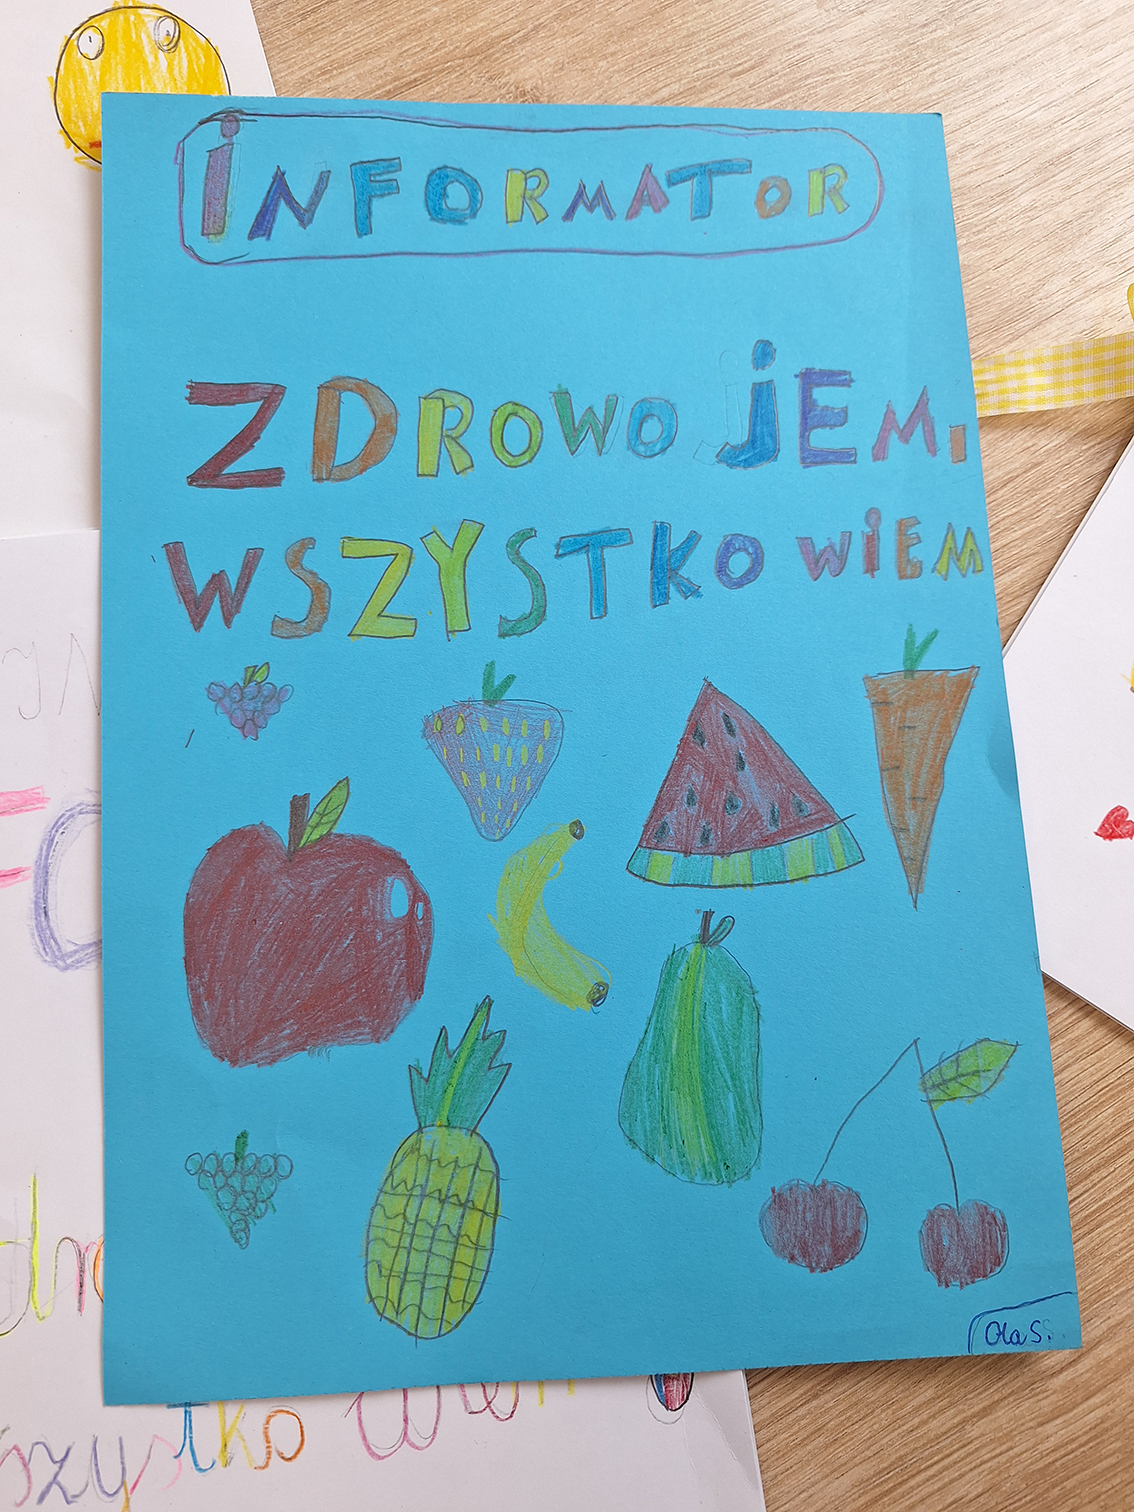 INFORMATOR
ZDROWO JEM,
WSZYSTKO WIEM
Ola S.
szystko wiem